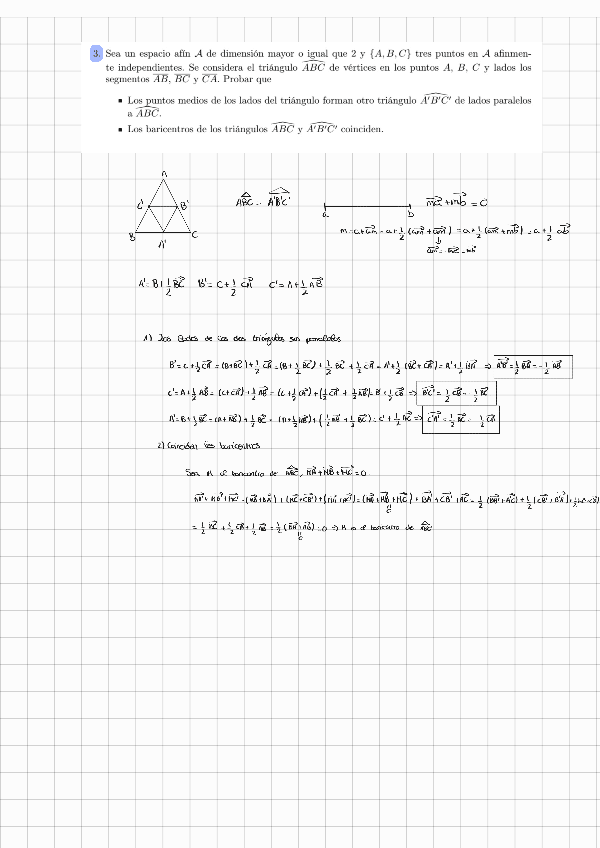 3. Sea un espacio afín A de dimensión mayor o igual que 2 y {A, B, C} tres puntos en A afinmen-
te independientes. Se considera el triángulo ABC de vértices en los puntos A, B, C y lados los
segmentos AB, BC y CA. Probar que
▪ Los puntos medios de los lados del triángulo forman otro triángulo A'B'C' de lados paralelos
a ABC.
▪ Los baricentros de los triángulos ABC y A'B'C' coinciden.
A
C' B'
B A' C
ABC A'B'C'
a b
ma + mb = 0
m = a + am = a + 1/2 (am + am) = a + 1/2 (am + mb) = a + 1/2 ab
A' = B + 1/2 BC B' = C + 1/2 CA C' = A + 1/2 AB
1) Los lados de los dos triángulos son paralelos
B' = C + 1/2 CA = (B + BC) + 1/2 CA = (B + 1/2 BC) + 1/2 BC + 1/2 CA = A' + 1/2 (BC + CA) = A' + 1/2 BA ⇒ A'B' = 1/2 BA = - 1/2 AB
C' = A + 1/2 AB = (C + CA) + 1/2 AB = (C + 1/2 CA) + (1/2 CA + 1/2 AB) = B' + 1/2 CB ⇒ B'C' = 1/2 CB = - 1/2 BC
A' = B + 1/2 BC = (A + AB) + 1/2 BC = (A + 1/2 AB) + (1/2 AB + 1/2 BC) = C' + 1/2 AC ⇒ C'A' = 1/2 AC = - 1/2 CA
2) Coinciden los baricentros
Sea M el baricentro de ABC, MA + MB + MC = 0
= 1/2 BC + 1/2 CA + 1/2 AB = 1/2 (BA + AB) = 0 ⇒ M es el baricentro de ABC